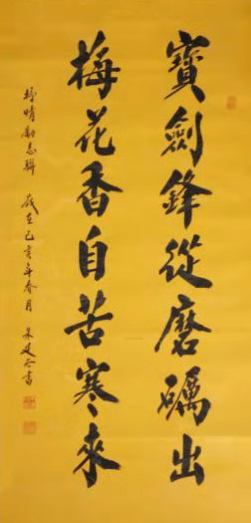 寳劍鋒從磨礪出
梅花香自苦寒來
抒情勵志聯 歲在己亥年春月